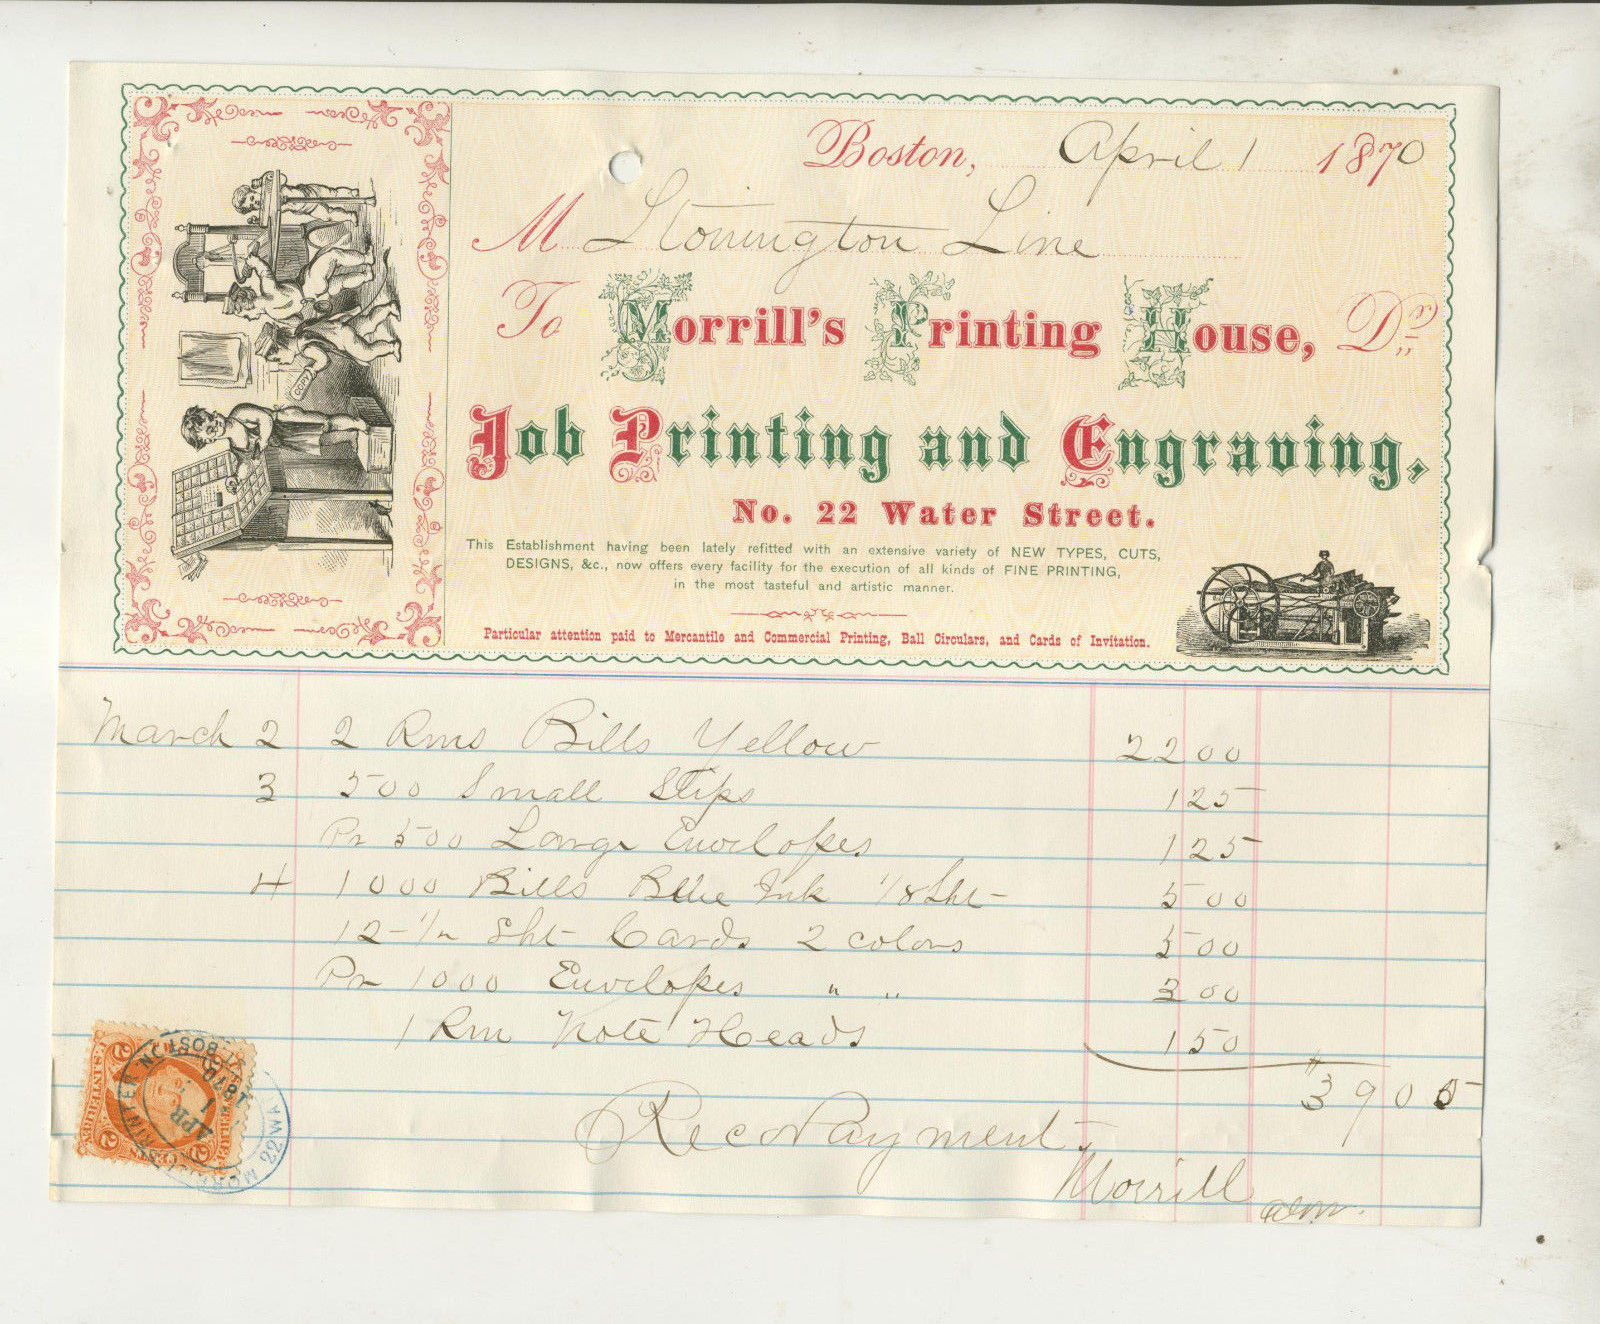 Boston, April 1 1870
M Stonington Line
To Morrill's Printing House, Dr.
Job Printing and Engraving,
No. 22 Water Street.
This Establishment having been lately refitted with an extensive variety of NEW TYPES, CUTS,
DESIGNS, &c., now offers every facility for the execution of all kinds of FINE PRINTING,
in the most tasteful and artistic manner.
Particular attention paid to Mercantile and Commercial Printing, Ball Circulars, and Cards of Invitation.
COPY
March 2 2 Rms Bills Yellow 22 00
3 500 Small Slips 1 25
Pr 500 Large Envelopes 1 25
4 1000 Bills Blue Ink 1/8 Sht 5 00
12 Sht Cards 2 colors 5 00
Pr 1000 Envelopes " " 3 00
1 Rm Note Heads 1 50
$39 05
Rec Payment
Morrill
BOSTON
APR 1 1870
22 WA
U.S. INTER. REV.
2 2